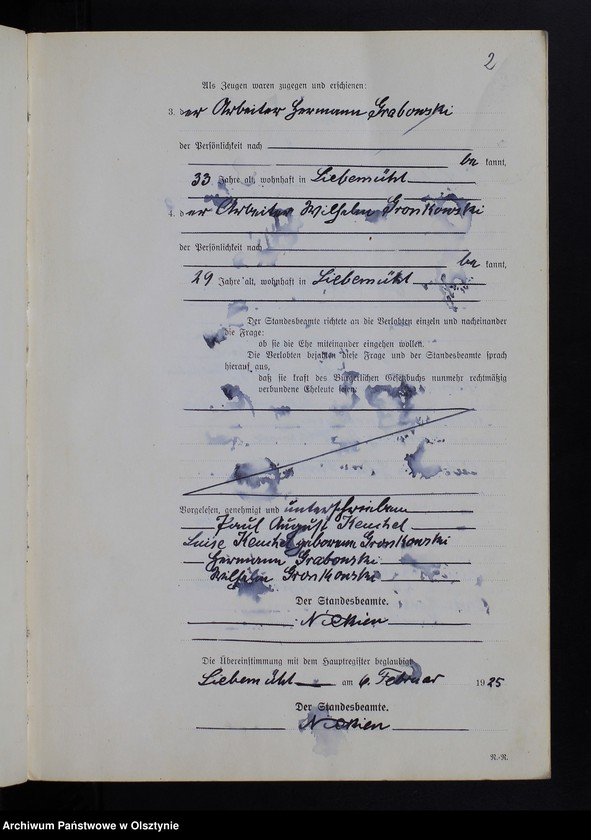 2
Als Zeugen waren zugegen und erschienen:
3. der Arbeiter Hermann Grabowski
der Persönlichkeit nach
be kannt,
33 Jahre alt, wohnhaft in Liebemühl
4. der Arbeiter Wilhelm Gronkowski
der Persönlichkeit nach
be kannt,
29 Jahre alt, wohnhaft in Liebemühl
Der Standesbeamte richtete an die Verlobten einzeln und nacheinander
die Frage:
ob sie die Ehe miteinander eingehen wollen.
Die Verlobten bejahten diese Frage und der Standesbeamte sprach
hierauf aus,
daß sie kraft des Bürgerlichen Gesetzbuchs nunmehr rechtmäßig
verbundene Eheleute seien.
Vorgelesen, genehmigt und unterschrieben
Paul August Keuchel
Luise Keuchel geborene Gronkowski
Hermann Grabowski
Wilhelm Gronkowski
Der Standesbeamte.
Die Übereinstimmung mit dem Hauptregister beglaubigt
Liebemühl am 6. Februar 1925
Der Standesbeamte.
R.-R.
Archiwum Państwowe w Olsztynie